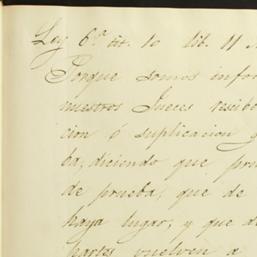 Ley 6.ª tit. 10 lib. 11 N
Porque somos infor
nuestros Jueces resibe
cion ó suplicacion y
ba, diciendo que pru
de prueba, que de
haya lugar, y que d
hartes vuelven a